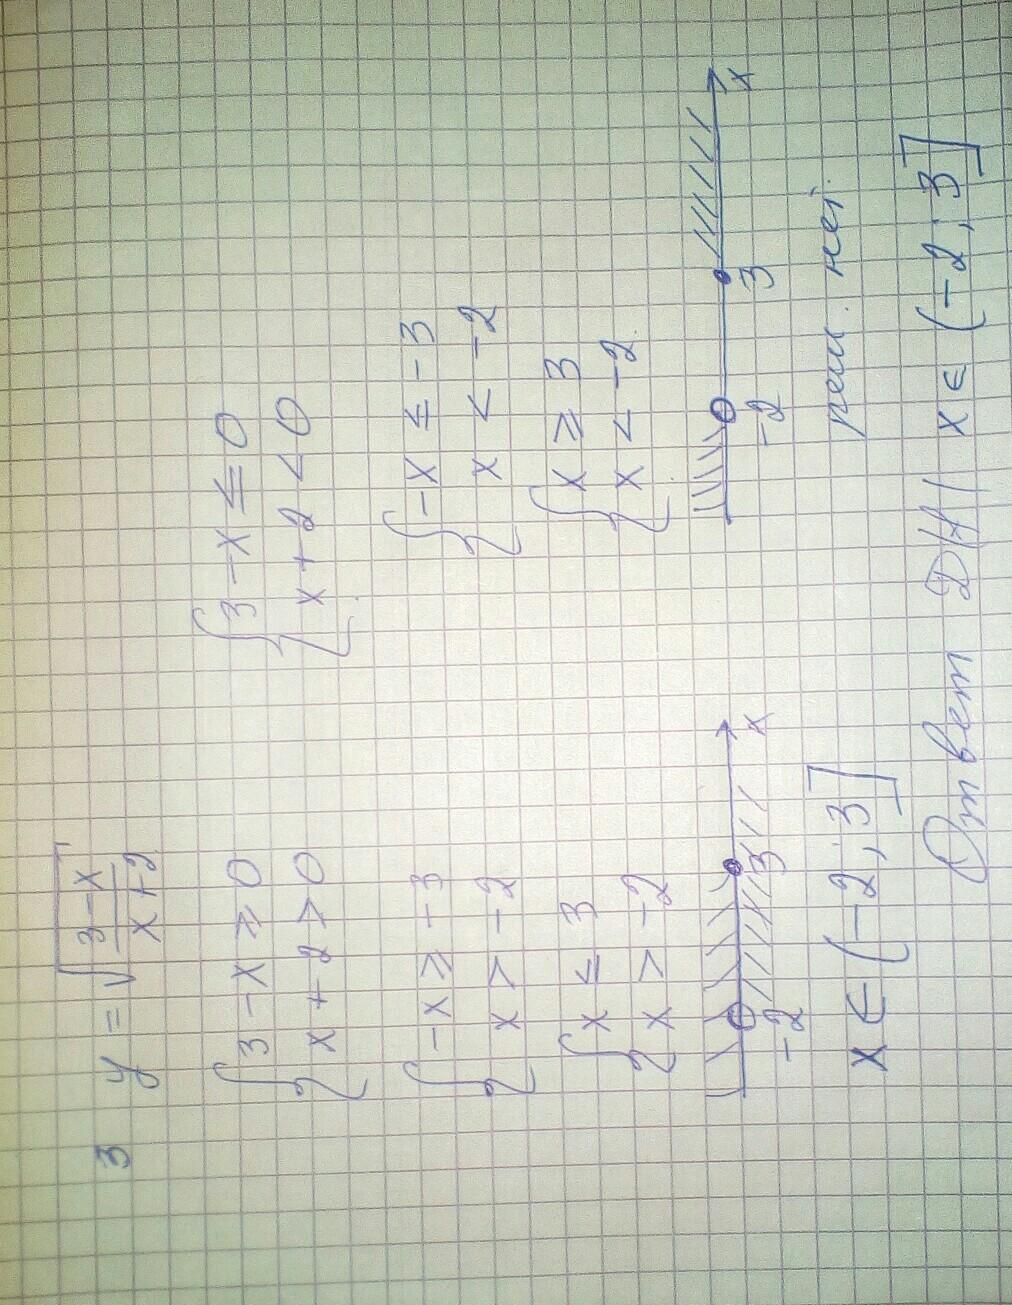 3 y = √(3-x)/(x+2)
{ 3-x ≥ 0
x+2 > 0
{ -x ≥ -3
x > -2
{ x ≤ 3
x > -2
-2 3 x
x ∈ (-2; 3]
{ 3-x ≤ 0
x+2 < 0
{ -x ≤ -3
x < -2
{ x ≥ 3
x < -2
-2 3 x
реш. нет.
Ответ D(y) x ∈ (-2; 3]